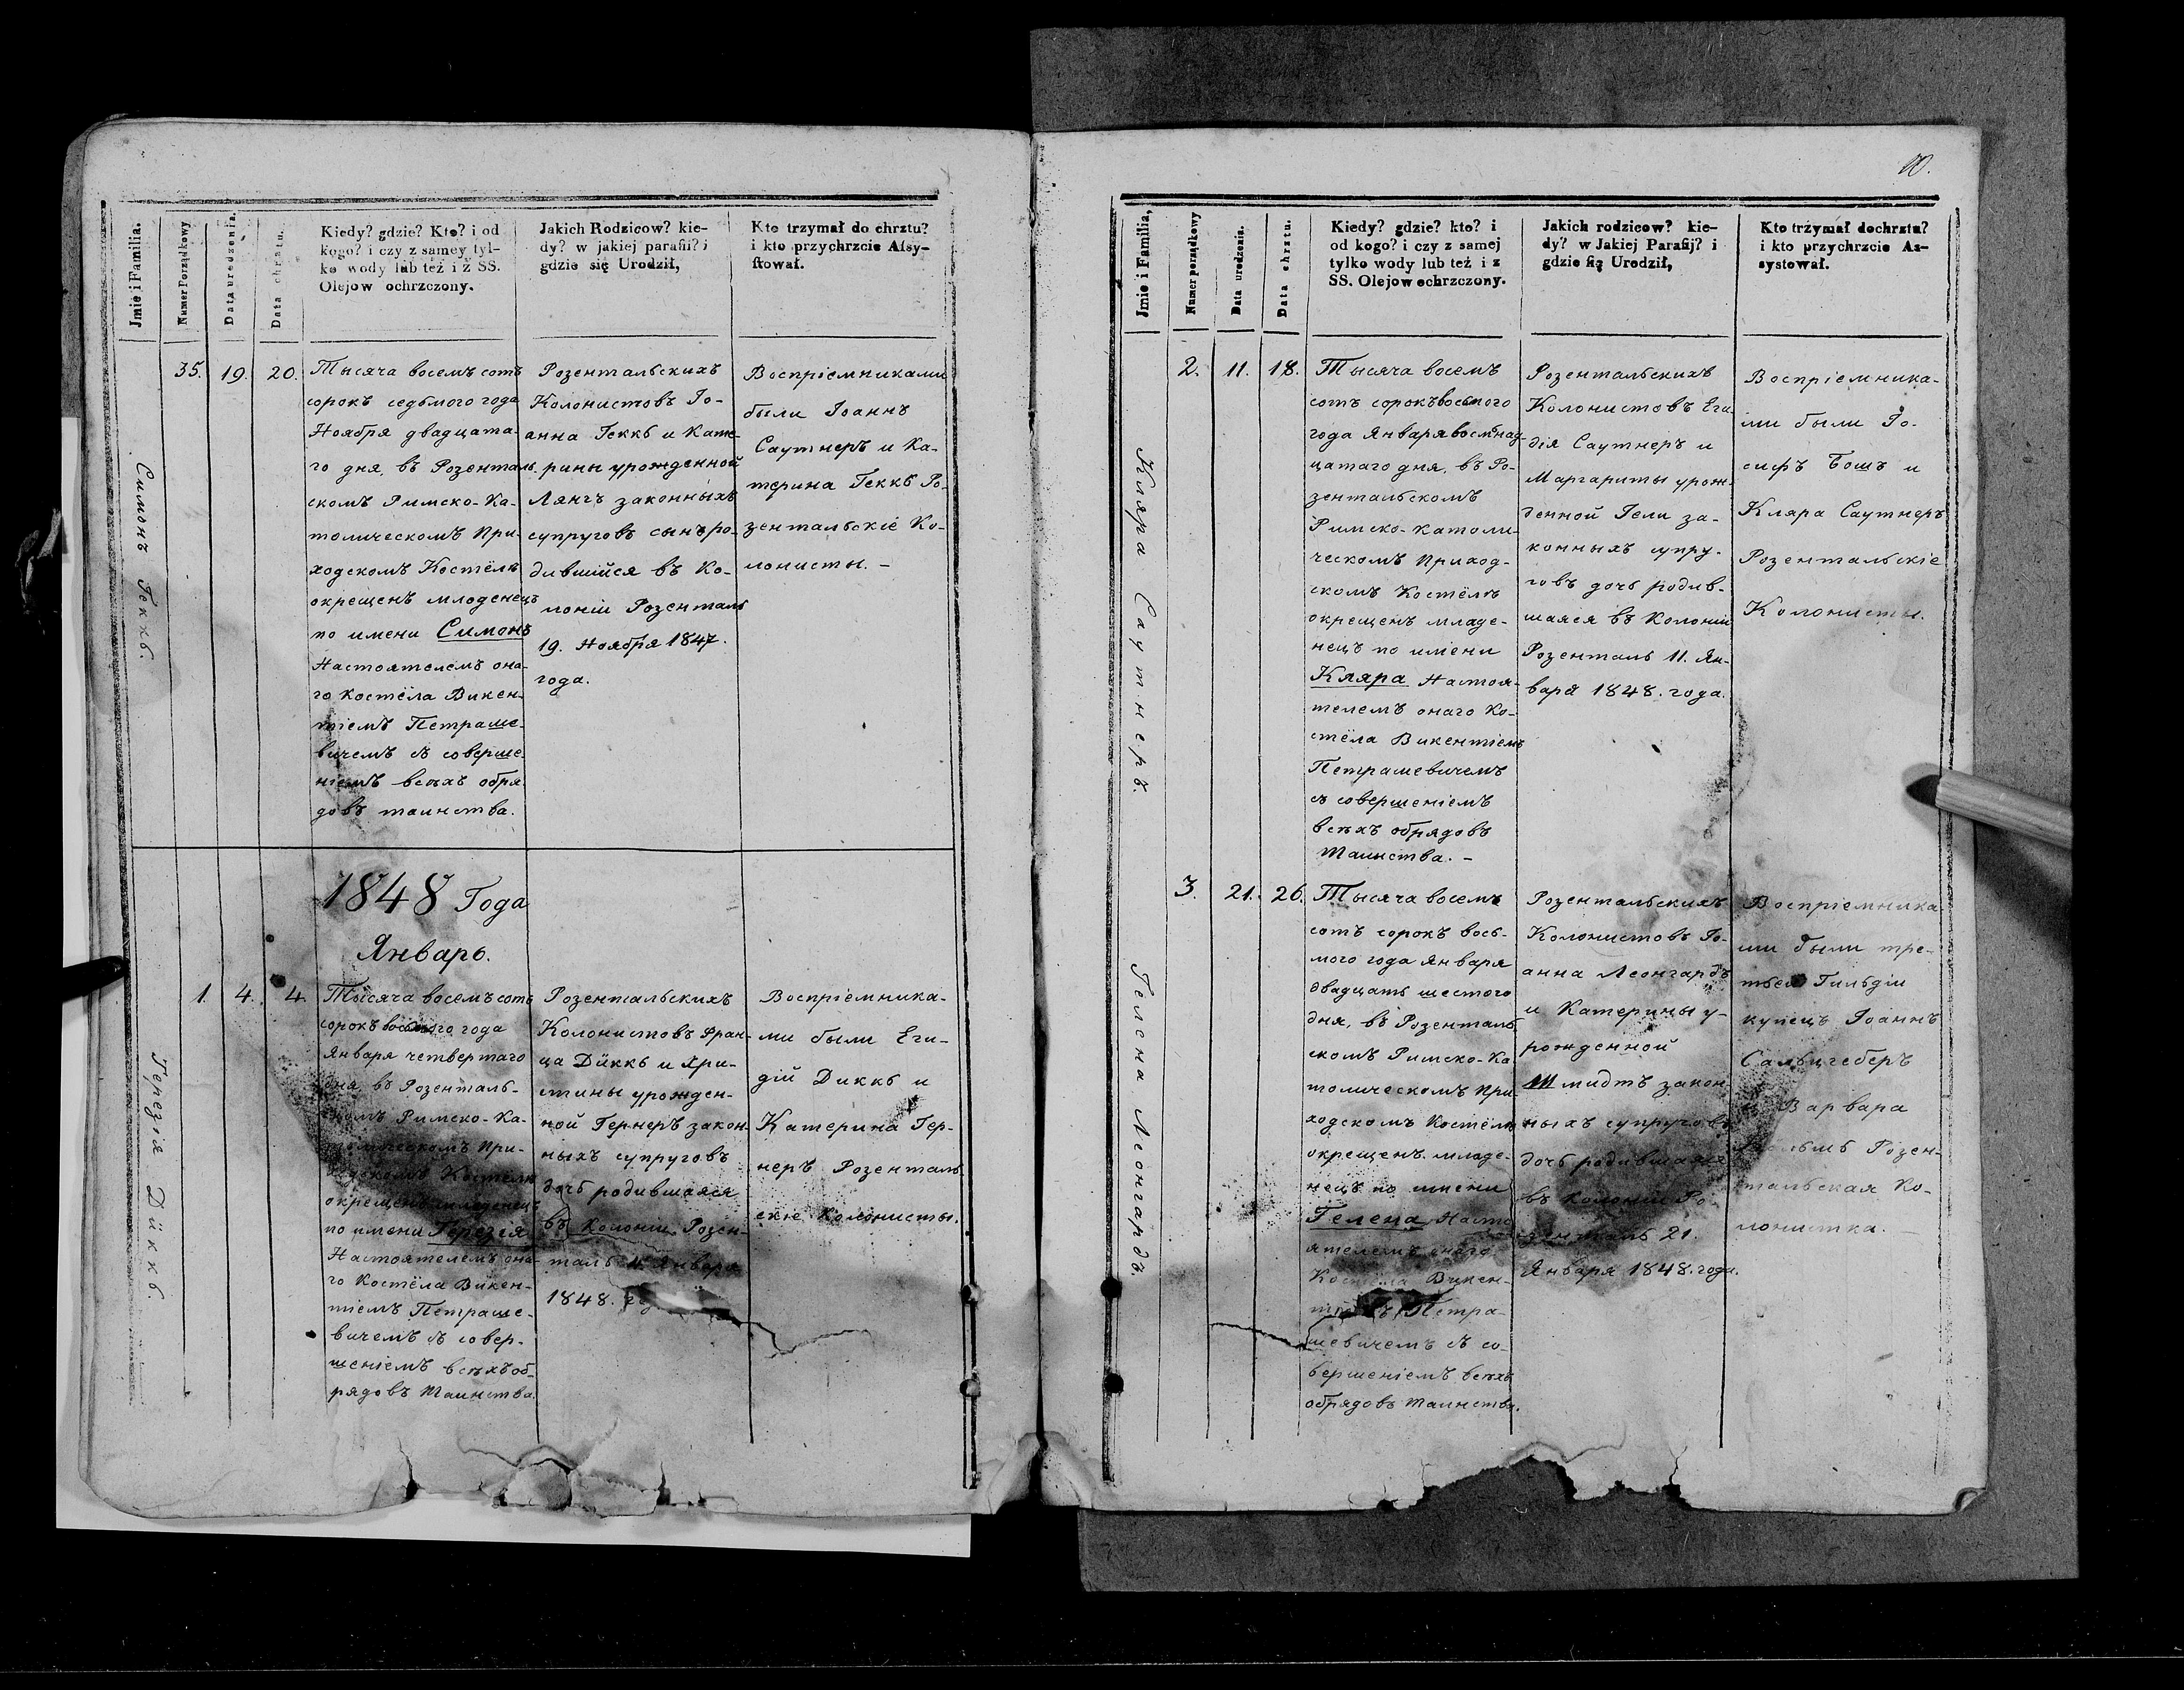 Jmie i Familia.
Numer Porządkowy
Data urodzenia.
Data chrztu.
Kiedy? gdzie? Kto? i od
kogo? i czy z samey tyl-
ko wody lub też i z SS.
Olejow ochrzczony.
Jakich Rodzicow? kie-
dy? w jakiej parafii? i
gdzie się Urodził,
Kto trzymał do chrztu?
i kto przychrzcie Assy-
stował.
Симонъ Геккъ.
35.
19.
20.
Тысяча восемъ сотъ
сорокъ седьмого года
Ноября двадцата-
го дня, въ Розенталь-
скомъ Римско-Ка-
толическомъ При-
ходскомъ Костёлѣ
окрещенъ младенецъ
по имени Симонъ
Настоятелемъ она-
го Костёла Викен-
тіемъ Петраше-
вичемъ съ соверше-
ніемъ всѣхъ обря-
довъ таинства.
Розентальскихъ
Колонистовъ Іо-
анна Геккъ и Кате-
рины урожденной
Лянгъ законныхъ
супруговъ сынъ ро-
дившійся въ Ко-
лоніи Розенталь
19. Ноября 1847.
года.
Воспріемниками
были Іоаннъ
Саутнеръ и Ка-
терина Геккъ Ро-
зентальскіе Ко-
лонисты. -
1848 Года
Январь.
Терезія Дӥккъ.
1.
4.
4.
Тысяча восемъ сотъ
сорокъ восьмого года
Января четвертаго
дня въ Розенталь-
скомъ Римско-Ка-
толическомъ При-
ходскомъ Костёлѣ
окрещенъ младенецъ
по имени Терезія
Настоятелемъ она-
го Костёла Викен-
тіемъ Петраше-
вичемъ съ совер-
шеніемъ всѣхъ об-
рядовъ Таинства.
Розентальскихъ
Колонистовъ Фран-
ца Дӥккъ и Хри-
стины урожден-
ной Гернеръ закон-
ныхъ супруговъ
дочь родившаяся
въ Колоніи Розен-
таль 4. Января
1848.
Воспріемника-
ми были Еги-
дій Диккъ и
Катерина Гер-
неръ Розенталь-
скіе Колонисты.
10.
Jmie i Familia,
Numer porządkowy
Data urodzenia.
Data chrztu.
Kiedy? gdzie? kto? i
od kogo? i czy z samej
tylko wody lub też i z
SS. Olejow ochrzczony.
Jakich rodzicow? kie-
dy? w Jakiej Parafij? i
gdzie się Urodził,
Kto trzymał dochrztu?
i kto przychrzcie As-
systował.
Кляра Саутнеръ.
2.
11.
18.
Тысяча восемъ
сотъ сорокъ восьмого
года Января восемнад-
цатаго дня, въ Ро-
зентальскомъ
Римско-Католи-
ческомъ Приход-
скомъ Костёлѣ
окрещенъ младе-
нецъ по имени
Кляра Настоя-
телемъ онаго Ко-
стёла Викентіемъ
Петрашевичемъ
съ совершеніемъ
всѣхъ обрядовъ
Таинства. -
Розентальскихъ
Колонистовъ Еги-
дія Саутнеръ и
Маргариты урож-
генной Гели за-
конныхъ супру-
говъ дочь родив-
шаяся въ Колоніи
Розенталь 11. Ян-
варя 1848. года.
Воспріемника-
ми были Іо-
сифъ Бошъ и
Кляра Саутнеръ
Розентальскіе
Колонисты.
Гелена Леонгардъ.
3.
21.
26.
Тысяча восемъ
сотъ сорокъ вось-
мого года Января
двадцать шестого
дня, въ Розенталь-
скомъ Римско-Ка-
толическомъ При-
ходскомъ Костёлѣ
окрещенъ младе-
нецъ по имени
Гелена Насто-
ятелемъ онаго
Костёла Викен-
тіемъ Петра-
шевичемъ съ со-
вершеніемъ всѣхъ
обрядовъ таинства.
Розентальскихъ
Колонистовъ Іо-
анна Леонгардъ
и Катерины у-
рожденной
Шмидтъ закон-
ныхъ супруговъ
дочь родившаяся
въ Колоніи Ро-
зенталь 21.
Января 1848. года.
Воспріемника-
ми были тре-
тьей Гильдіи
купецъ Іоаннъ
Сальцгеберъ
и Варвара
Розен-
тальская Ко-
лонистка. -